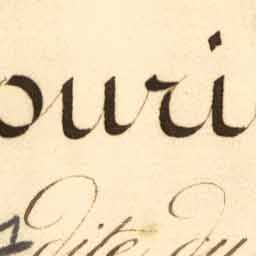 ouri
dite du